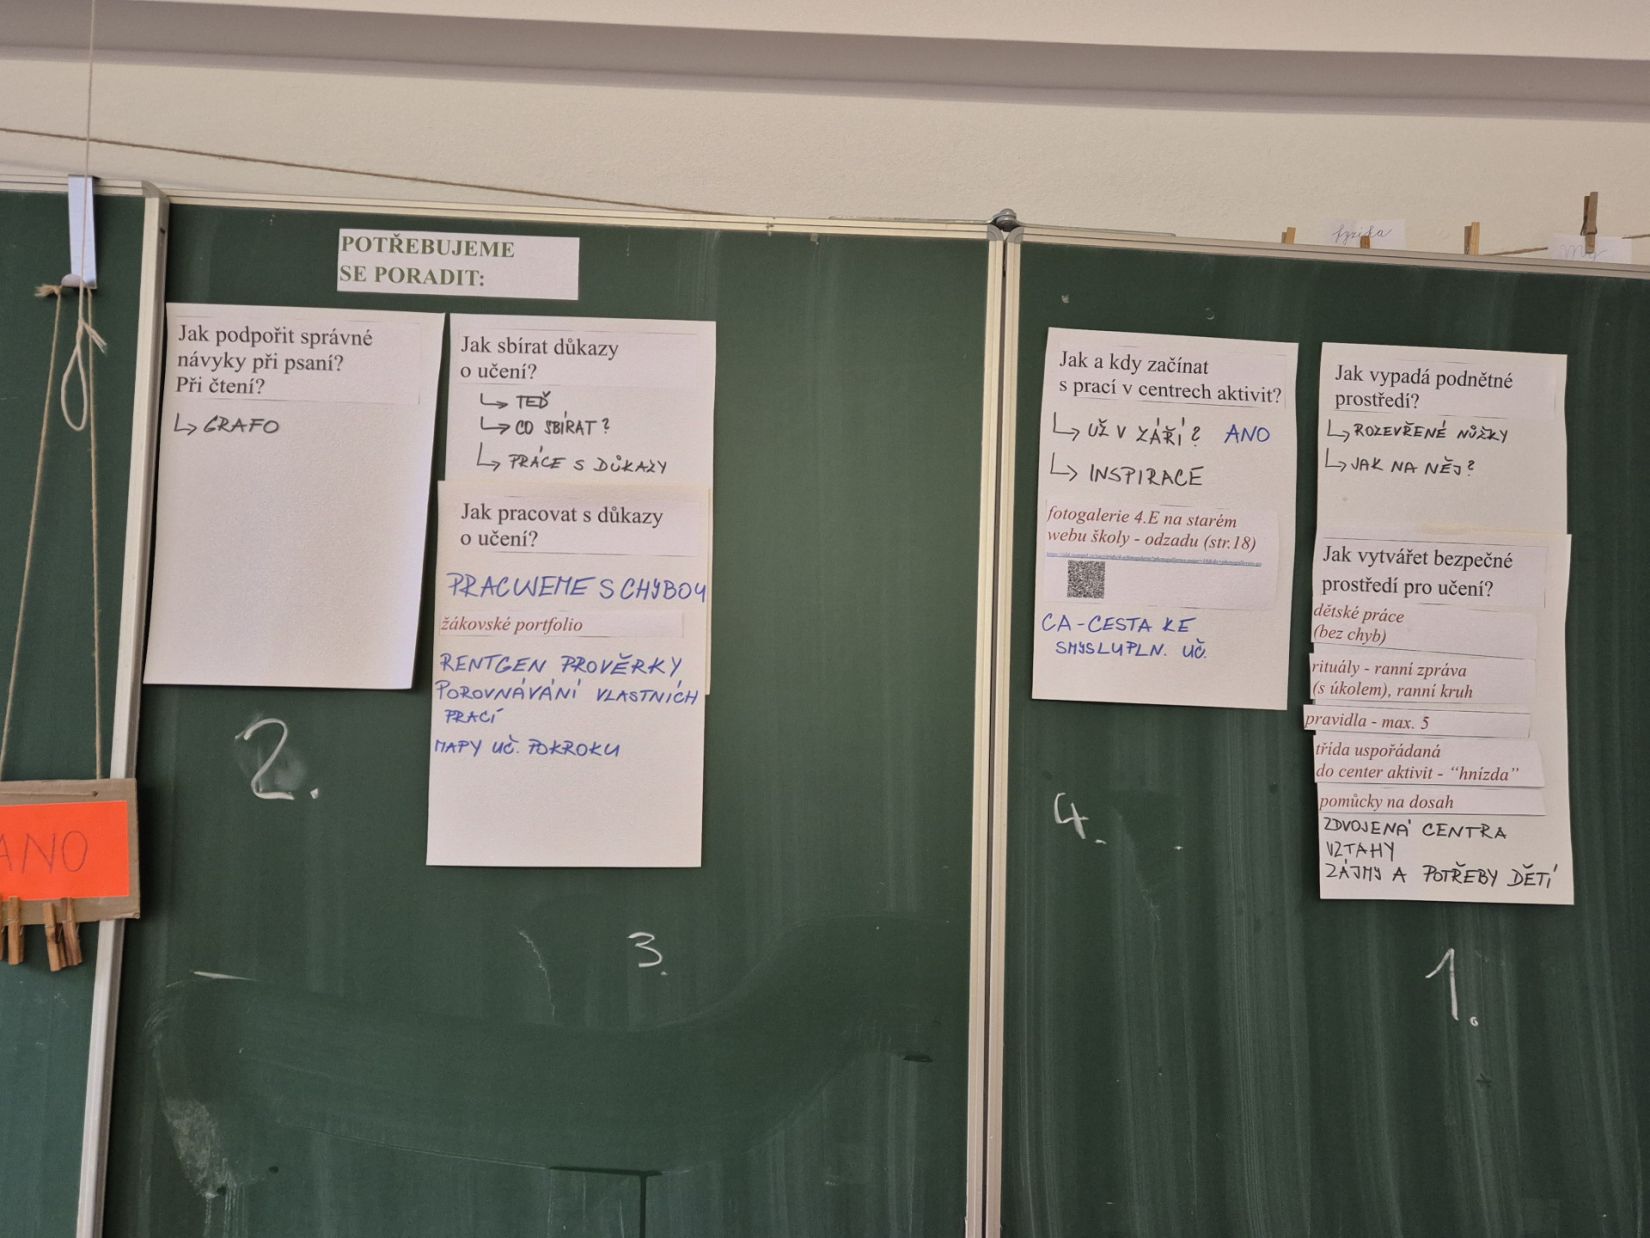 POTŘEBUJEME
SE PORADIT:
Jak podpořit správné
návyky při psaní?
Při čtení?
↳ GRAFO
2.
Jak sbírat důkazy
o učení?
↳ TEĎ
↳ CO SBÍRAT?
↳ PRÁCE S DŮKAZY
Jak pracovat s důkazy
o učení?
PRACUJEME S CHYBOU
žákovské portfolio
RENTGEN PROVĚRKY
POROVNÁVÁNÍ VLASTNÍCH
PRACÍ
MAPY UČ. POKROKU
3.
Jak a kdy začínat
s prací v centrech aktivit?
↳ UŽ V ZÁŘÍ? ANO
↳ INSPIRACE
fotogalerie 4.E na starém
webu školy - odzadu (str.18)
CA - CESTA KE
SMYSLUPLN. UČ.
4.
Jak vypadá podnětné
prostředí?
↳ ROZEVŘENÉ NŮŽKY
↳ JAK NA NĚJ?
Jak vytvářet bezpečné
prostředí pro učení?
dětské práce
(bez chyb)
rituály - ranní zpráva
(s úkolem), ranní kruh
pravidla - max. 5
třída uspořádaná
do center aktivit - “hnízda”
pomůcky na dosah
ZDVOJENÁ CENTRA
VZTAHY
ZÁJMY A POTŘEBY DĚTÍ
1.
ANO
fyzika